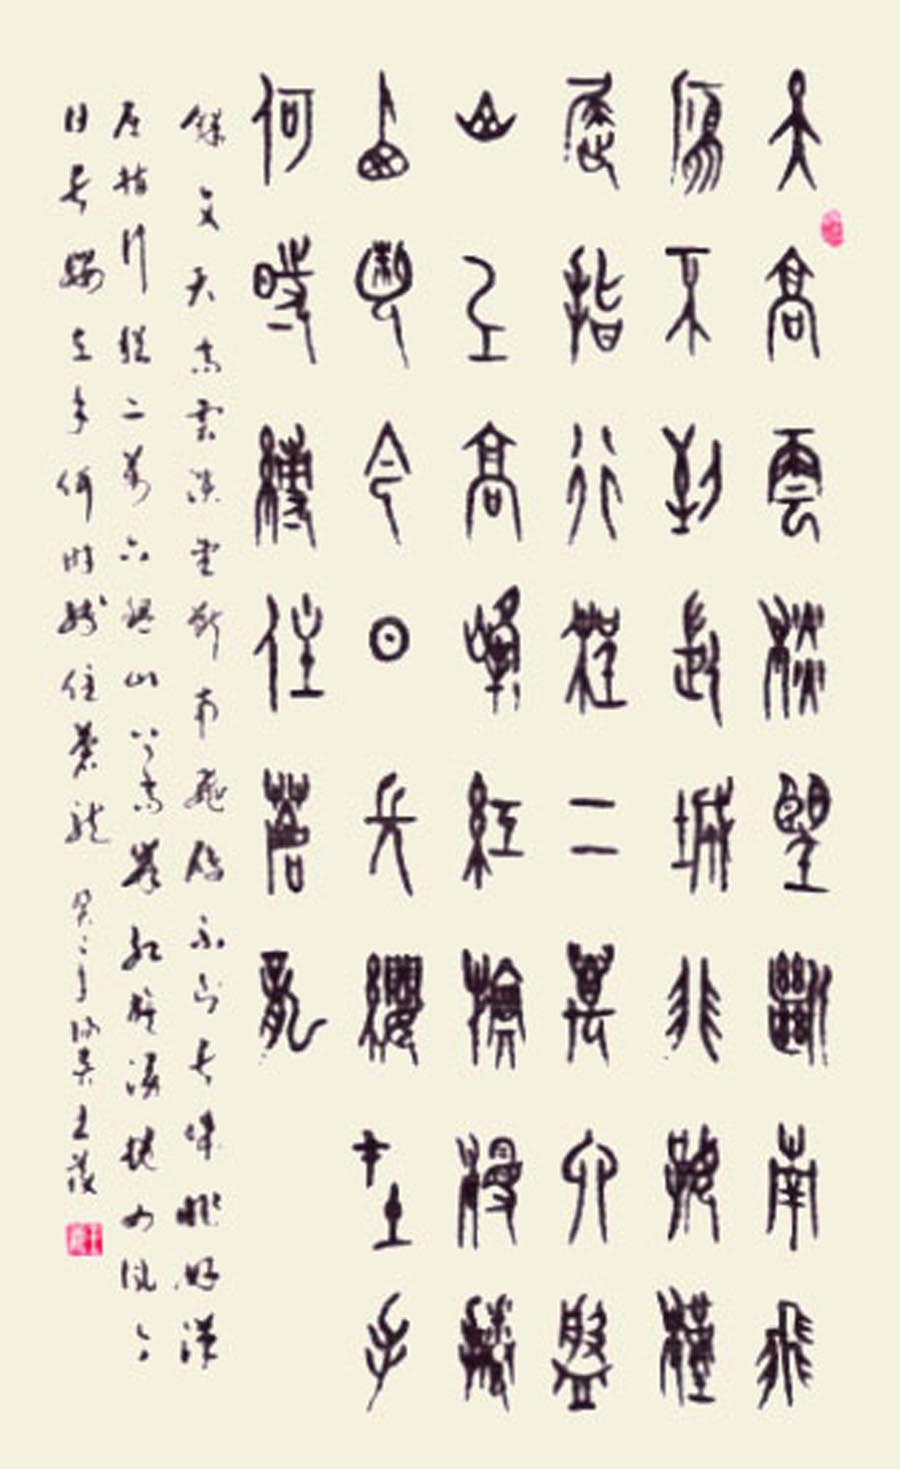 天高雲淡望斷南飛
雁不到長城非好漢
屈指行程二萬六盤
山上高峰紅旗漫捲
西風今日長纓在手
何時縛住蒼龍
錄文天高雲淡望斷南飛雁不到長城非好漢
屈指行程二萬六盤山上高峰紅旗漫捲西風今
日長纓在手何時縛住蒼龍癸巳年王